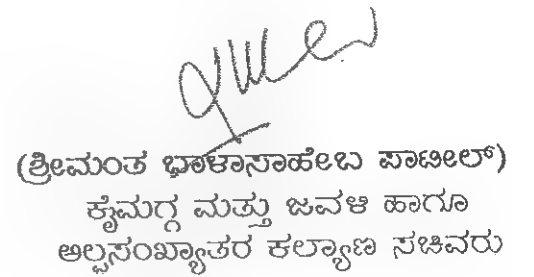 (ಶ್ರೀಮಂತ ಭಾಳಾಸಾಹೇಬ ಪಾಟೀಲ್)
ಕೈಮಗ್ಗ ಮತ್ತು ಜವಳಿ ಹಾಗೂ
ಅಲ್ಪಸಂಖ್ಯಾತರ ಕಲ್ಯಾಣ ಸಚಿವರು